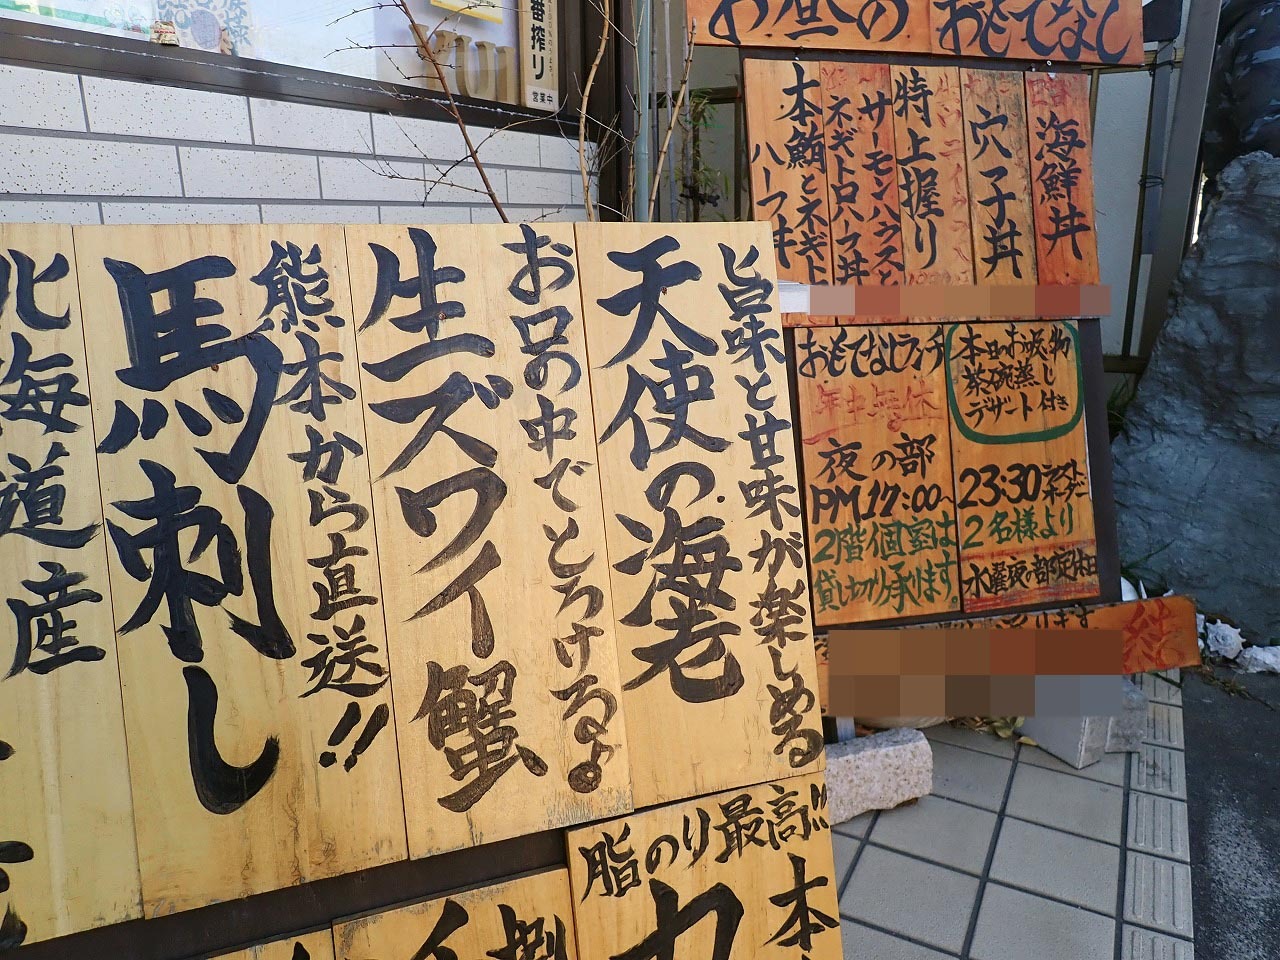 お昼の おもてなし
海鮮丼
穴子丼
特上握り
サーモンハラスと
ネギトロハーフ丼
本鮪とネギト
ハーフ丼
おもてなしランチ
年中無休
本日のお吸い物
茶碗蒸し
デザート付き
夜の部
PM17:00~
23:30 ラストオーダー
2階個室は
貸し切り承ります。
2名様より
水曜夜の部定休日
旨味と甘味が楽しめる
天使の海老
お口の中でとろけるよ。
生ズワイ蟹
熊本から直送!!
馬刺し
北海道産
脂のり最高!!
本
番搾り
営業中